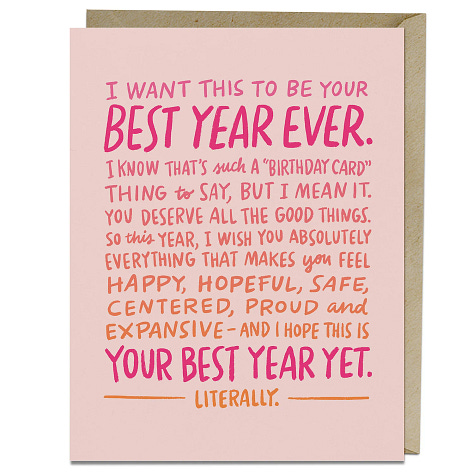 I WANT THIS TO BE YOUR
BEST YEAR EVER.
I KNOW THAT'S such A "BIRTHDAY CARD"
THING to SAY, BUT I MEAN IT.
YOU DESERVE ALL THE GOOD THINGS.
SO this YEAR, I WISH YOU ABSOLUTELY
EVERYTHING THAT MAKES you FEEL
HAPPY, HOPEFUL, SAFE,
CENTERED, PROUD and
EXPANSIVE – AND I HOPE THIS IS
YOUR BEST YEAR YET.
LITERALLY.